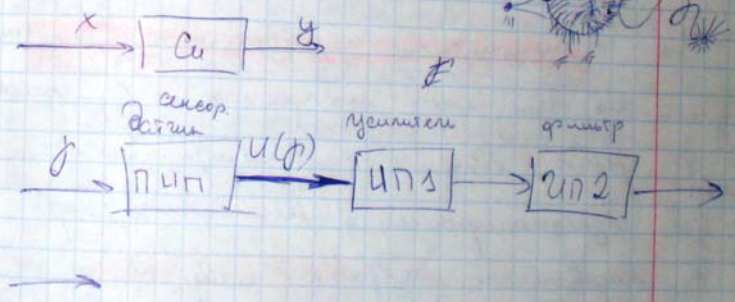 x Си y
сенсор
датчик усилитель фильтр
γ ПИП U(γ) ИП1 ИП2